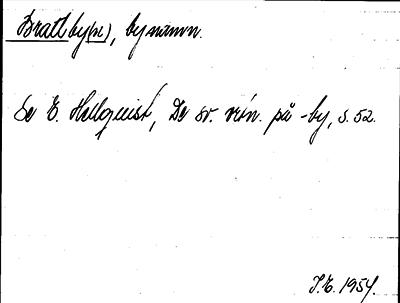 Bratlby(n), bynamn.
Se E. Hellquist, De sv. ortn. på -by, s. 52.
S.E. 1954.